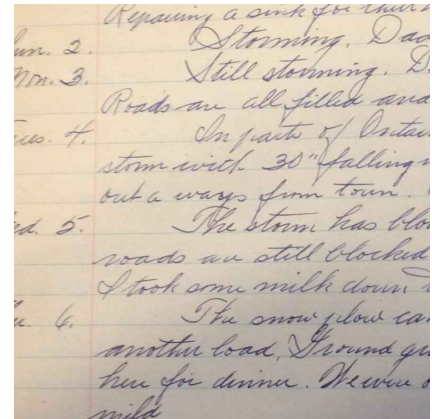 Repairing a sink for their
Sun. 2. Storming. Dad
Mon. 3. Still storming. D
Roads are all filled and
ues. 4. In parts of Ontari
storm with 30" falling
out a ways from town.
ed. 5. The storm has blo
roads are still blocked
I took some milk down
u. 6. The snow plow ca
another load, I ground
here for dinner. We were
mild